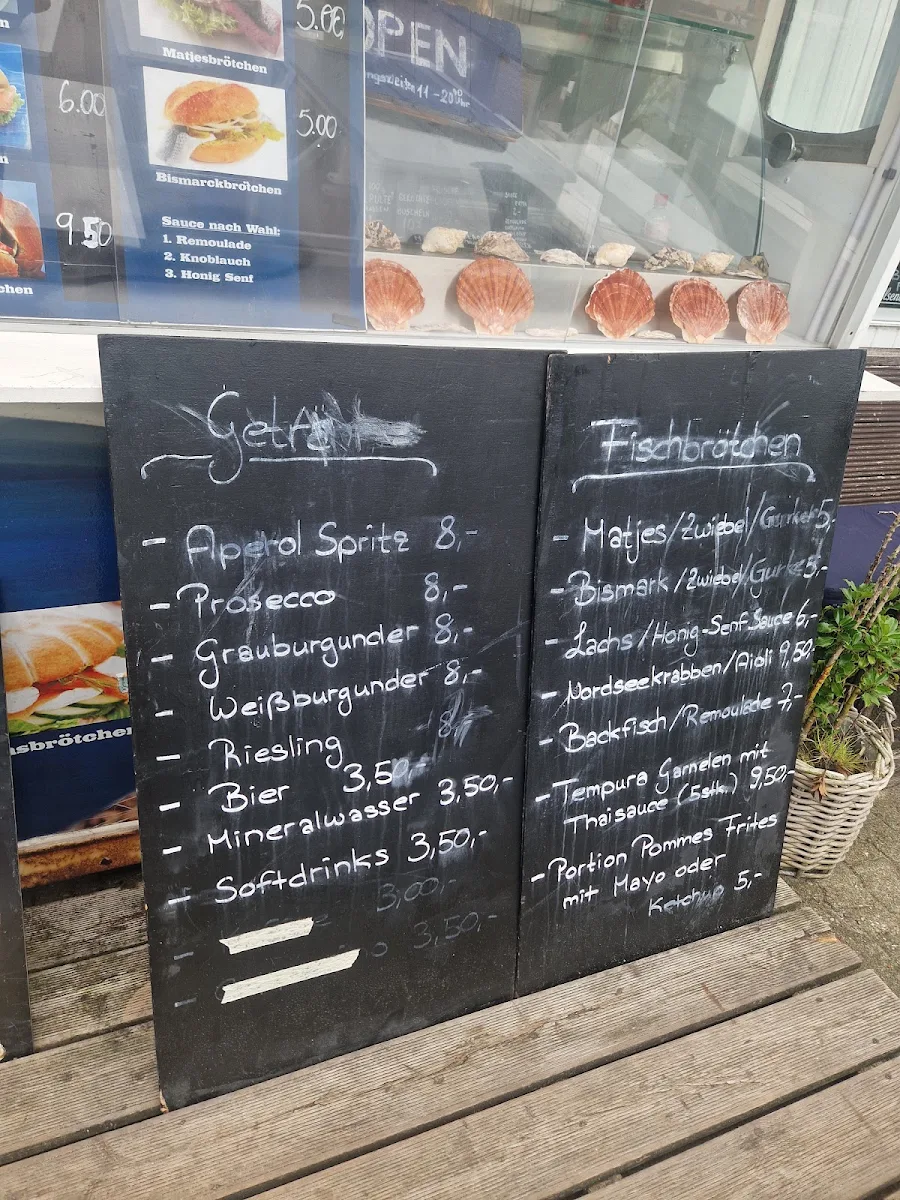 5.00
Matjesbrötchen
6.00
5.00
Bismarckbrötchen
9.50
Sauce nach Wahl:
1. Remoulade
2. Knoblauch
3. Honig Senf
OPEN
11-20⁰⁰ Uhr
Getränke
- Aperol Spritz 8,-
- Prosecco 8,-
- Grauburgunder 8,-
- Weißburgunder 8,-
- Riesling 8,-
- Bier 3,50,-
- Mineralwasser 3,50,-
- Softdrinks 3,50,-
3,00,-
- 3,50,-
-
Fischbrötchen
- Matjes/Zwiebel/Gurke 5,-
- Bismark/Zwiebel/Gurke 5,-
- Lachs/Honig-Senf Sauce 6,-
- Nordseekrabben/Aioli 9,50,-
- Backfisch/Remoulade 7,-
- Tempura Garnelen mit
Thaisauce (5stk.) 9,50,-
- Portion Pommes Frites
mit Mayo oder
Ketchup 5,-